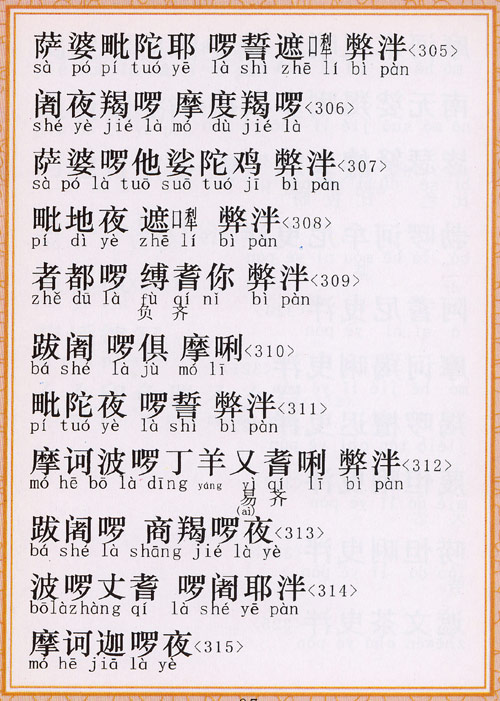 萨婆毗陀耶 啰誓遮㗚 弊泮<305>
sà pó pí tuó yē là shì zhē lí bì pàn
阇夜羯啰 摩度羯啰<306>
shé yè jié là mó dù jié là
萨婆啰他娑陀鸡 弊泮<307>
sà pó là tuō suō tuó jī bì pàn
毗地夜 遮 弊泮<308>
pí dì yè zhē lí bì pàn
者都啰 缚耆你 弊泮<309>
zhě dū là fù qí nǐ bì pàn
负 齐
跋阇 啰俱 摩唎<310>
bá shé là jù mó lī
毗陀夜 啰誓 弊泮<311>
pí tuó yè là shì bì pàn
摩诃波啰丁羊乂耆唎 弊泮<312>
mó hē bō là dīng yáng yì qí lī bì pàn
易 齐
(ài)
跋阇啰 商羯啰夜<313>
bá shé là shāng jié là yè
波啰丈耆 啰阇耶泮<314>
bōlàzhàng qí là shé yē pàn
摩诃迦啰夜<315>
mó hē jiā là yè